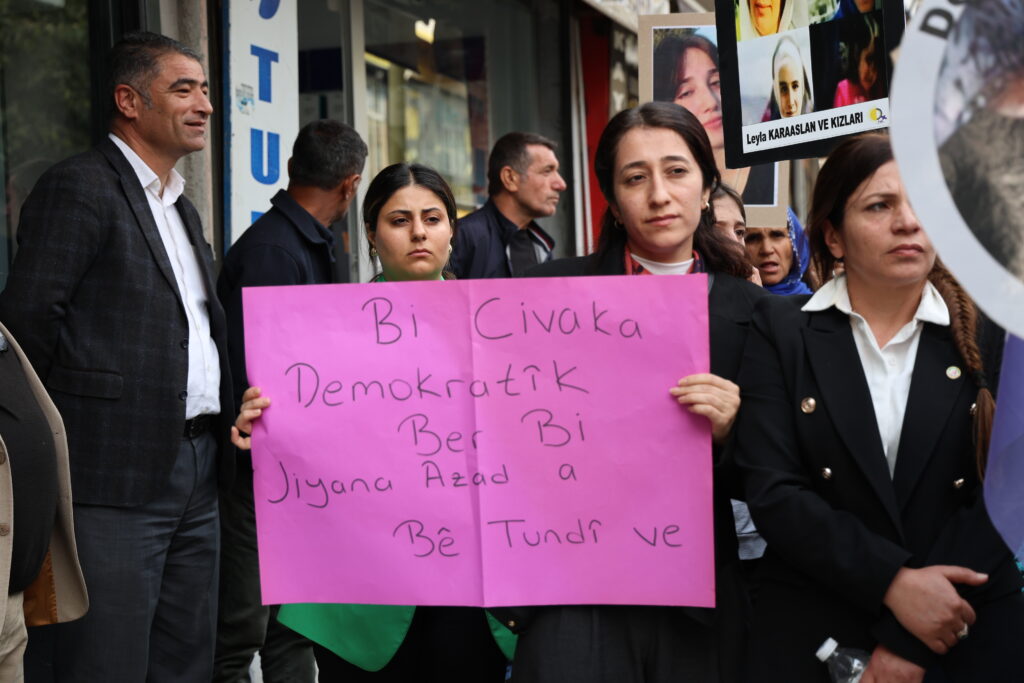 TU
Leyla KARAASLAN VE KIZLARI
Bi Civaka
Demokratîk
Ber Bi
Jiyana Azad a
Bê Tundî ve